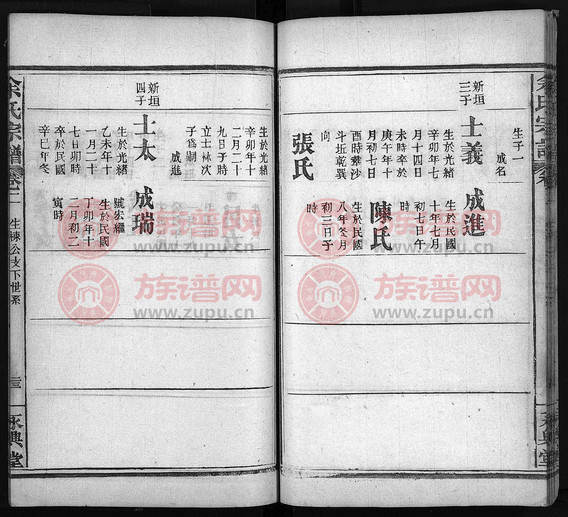 余氏宗譜
生子一
成名
新垣
三子
士義
生於光緒
辛卯年七
月十四日
未時卒於
庚午年十
月初七日
酉時葬沙
斗坵乾巽
向
張氏
成進
生於民國
十年七月
初七日午
時
陳氏
生於民國
八年冬月
初三日子
時
永興堂
生於光緒
辛卯年十
二月二十
九日子時
立士林次
子爲嗣
成進
新垣
四子
士太
生於光緒
乙未年十
一月二十
七日卯時
卒於民國
辛巳年冬
成瑞
號宏繼
生於民國
丁卯年十
二月初二
寅時
余氏宗譜
卷二
生棟公支下世系
永興堂
族谱网
www.zupu.cn
族谱网
www.zupu.cn
族谱网
www.zupu.cn
族谱网
www.zupu.cn